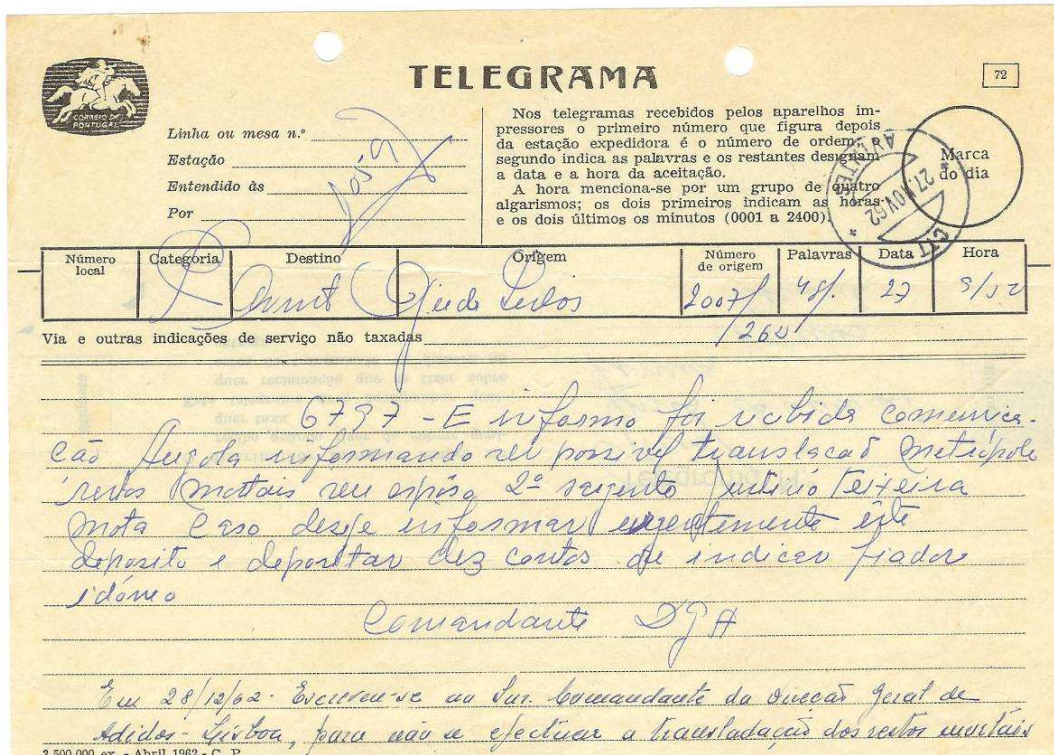 TELEGRAMA
72
CORREIO DE PORTUGAL
Linha ou mesa n.º
Estação
Entendido às
Por
Nos telegramas recebidos pelos aparelhos im-
pressores o primeiro número que figura depois
da estação expedidora é o número de ordem, o
segundo indica as palavras e os restantes designam
a data e a hora da aceitação.
A hora menciona-se por um grupo de quatro
algarismos; os dois primeiros indicam as horas
e os dois últimos os minutos (0001 a 2400).
Marca
do dia
27.NOV.62
CTT
Número local
Categoria
Destino
Origem
Número de origem
Palavras
Data
Hora
Ajuda
2007/
48/
27
9/50
/260
Via e outras indicações de serviço não taxadas
6797 - E informo foi recebida comunica-
ção Angola informando ser possivel translação Metrópole
restos mortais seu espôso 2º sargento Teixeira
Mota Caso deseje informar urgentemente êste
deposito e depositar dez contos de indicar fiador
idóneo
Comandante DGA
Em 28/12/62 - Escreveu-se ao Snr. Comandante da Direcção Geral de
Adidos - Lisboa, para não se efectuar a transladação dos restos mortais
3.500.000 ex. - Abril 1962 - C. P.